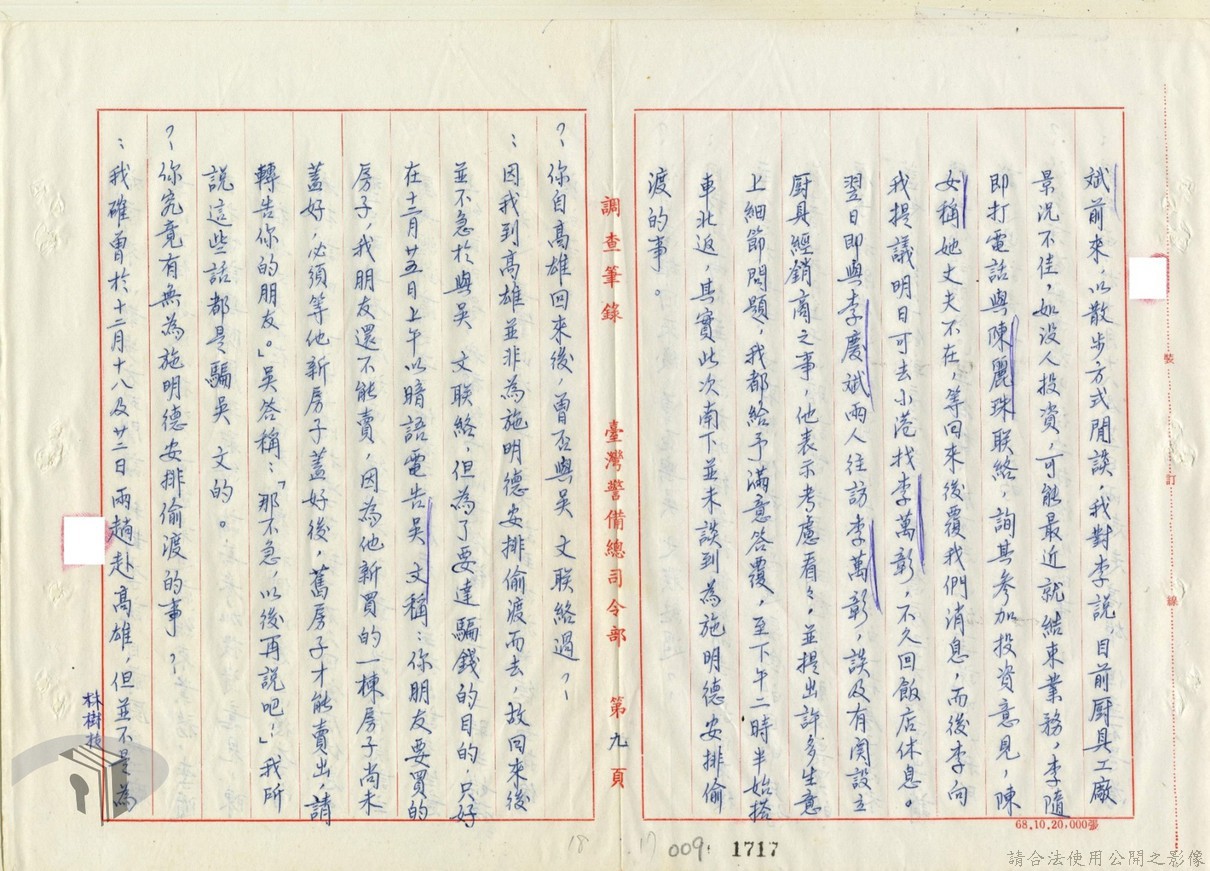 斌前來，以散步方式閒談，我對李說目前厨具工廠
景況不佳，如没人投資，可能最近就結束業務，李隨
即打電話與陳麗珠联絡，詢其参加投資意見，陳
女稱她丈夫不在，等回來後覆我們消息，而後李向
我提議明日可去小港找李萬彰，不久回飯店休息。
翌日即與李慶斌兩人往訪李萬彰，談及有関設立
厨具經銷商之事，他表示考慮看々，並提出許多生意
上細節問題，我都給予滿意答覆，至下午二時半始搭
車北返，其實此次南下並未談到為施明德安排偷
渡的事。
調查筆錄 臺灣警備總司令部 第九頁
？你自高雄回來後，曾否與吳 文联絡過？
：因我到高雄並非為施明德安排偷渡而去，故回來後
並不急於與吳 文联絡，但為了要達騙錢的目的，只好
在十二月廿五日上午以暗語電告吳 文稱：你朋友要買的
房子，我朋友還不能賣，因為他新買的一棟房子尚未
蓋好，必須等他新房子蓋好後，舊房子才能賣出，請
轉告你的朋友。吳答稱：「那不急，以後再說吧！」我所
說這些話都是騙吳 文的。
？你究竟有無為施明德安排偷渡的事？
：我確曾於十二月十八及廿二日兩趟赴高雄，但並不是為
林樹枝
裝
訂
線
68.10.20,000張
18
17
009
1717
請合法使用公開之影像